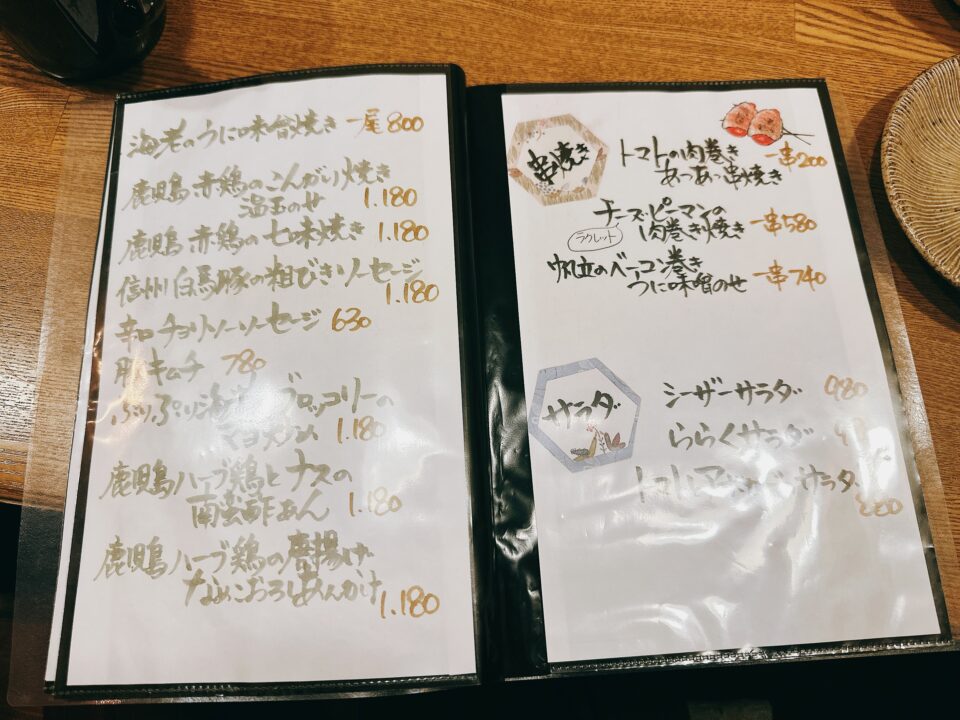 海老のうに味噌焼き 一尾 800
鹿児島 赤鶏のこんがり焼き
温玉のせ 1.180
鹿児島 赤鶏の七味焼き 1.180
信州白馬豚の粗びきソーセージ
1.180
辛口チョリソーソーセージ 630
キムチ 780
ぷり
ブロッコリーの
1.180
鹿児島ハーブ鶏とナスの
南蛮酢あん 1.180
鹿児島ハーブ鶏の唐揚げ
なめこおろしあんかけ
1.180
串焼き
トマトの肉巻き 一串200
あつあつ串焼き
チーズ・ピーマンの
ラクレット 肉巻き串焼き 一串580
帆立のベーコン巻き
うに味噌のせ 一串740
サラダ
シーザーサラダ 980
ららくサラダ
サラダ